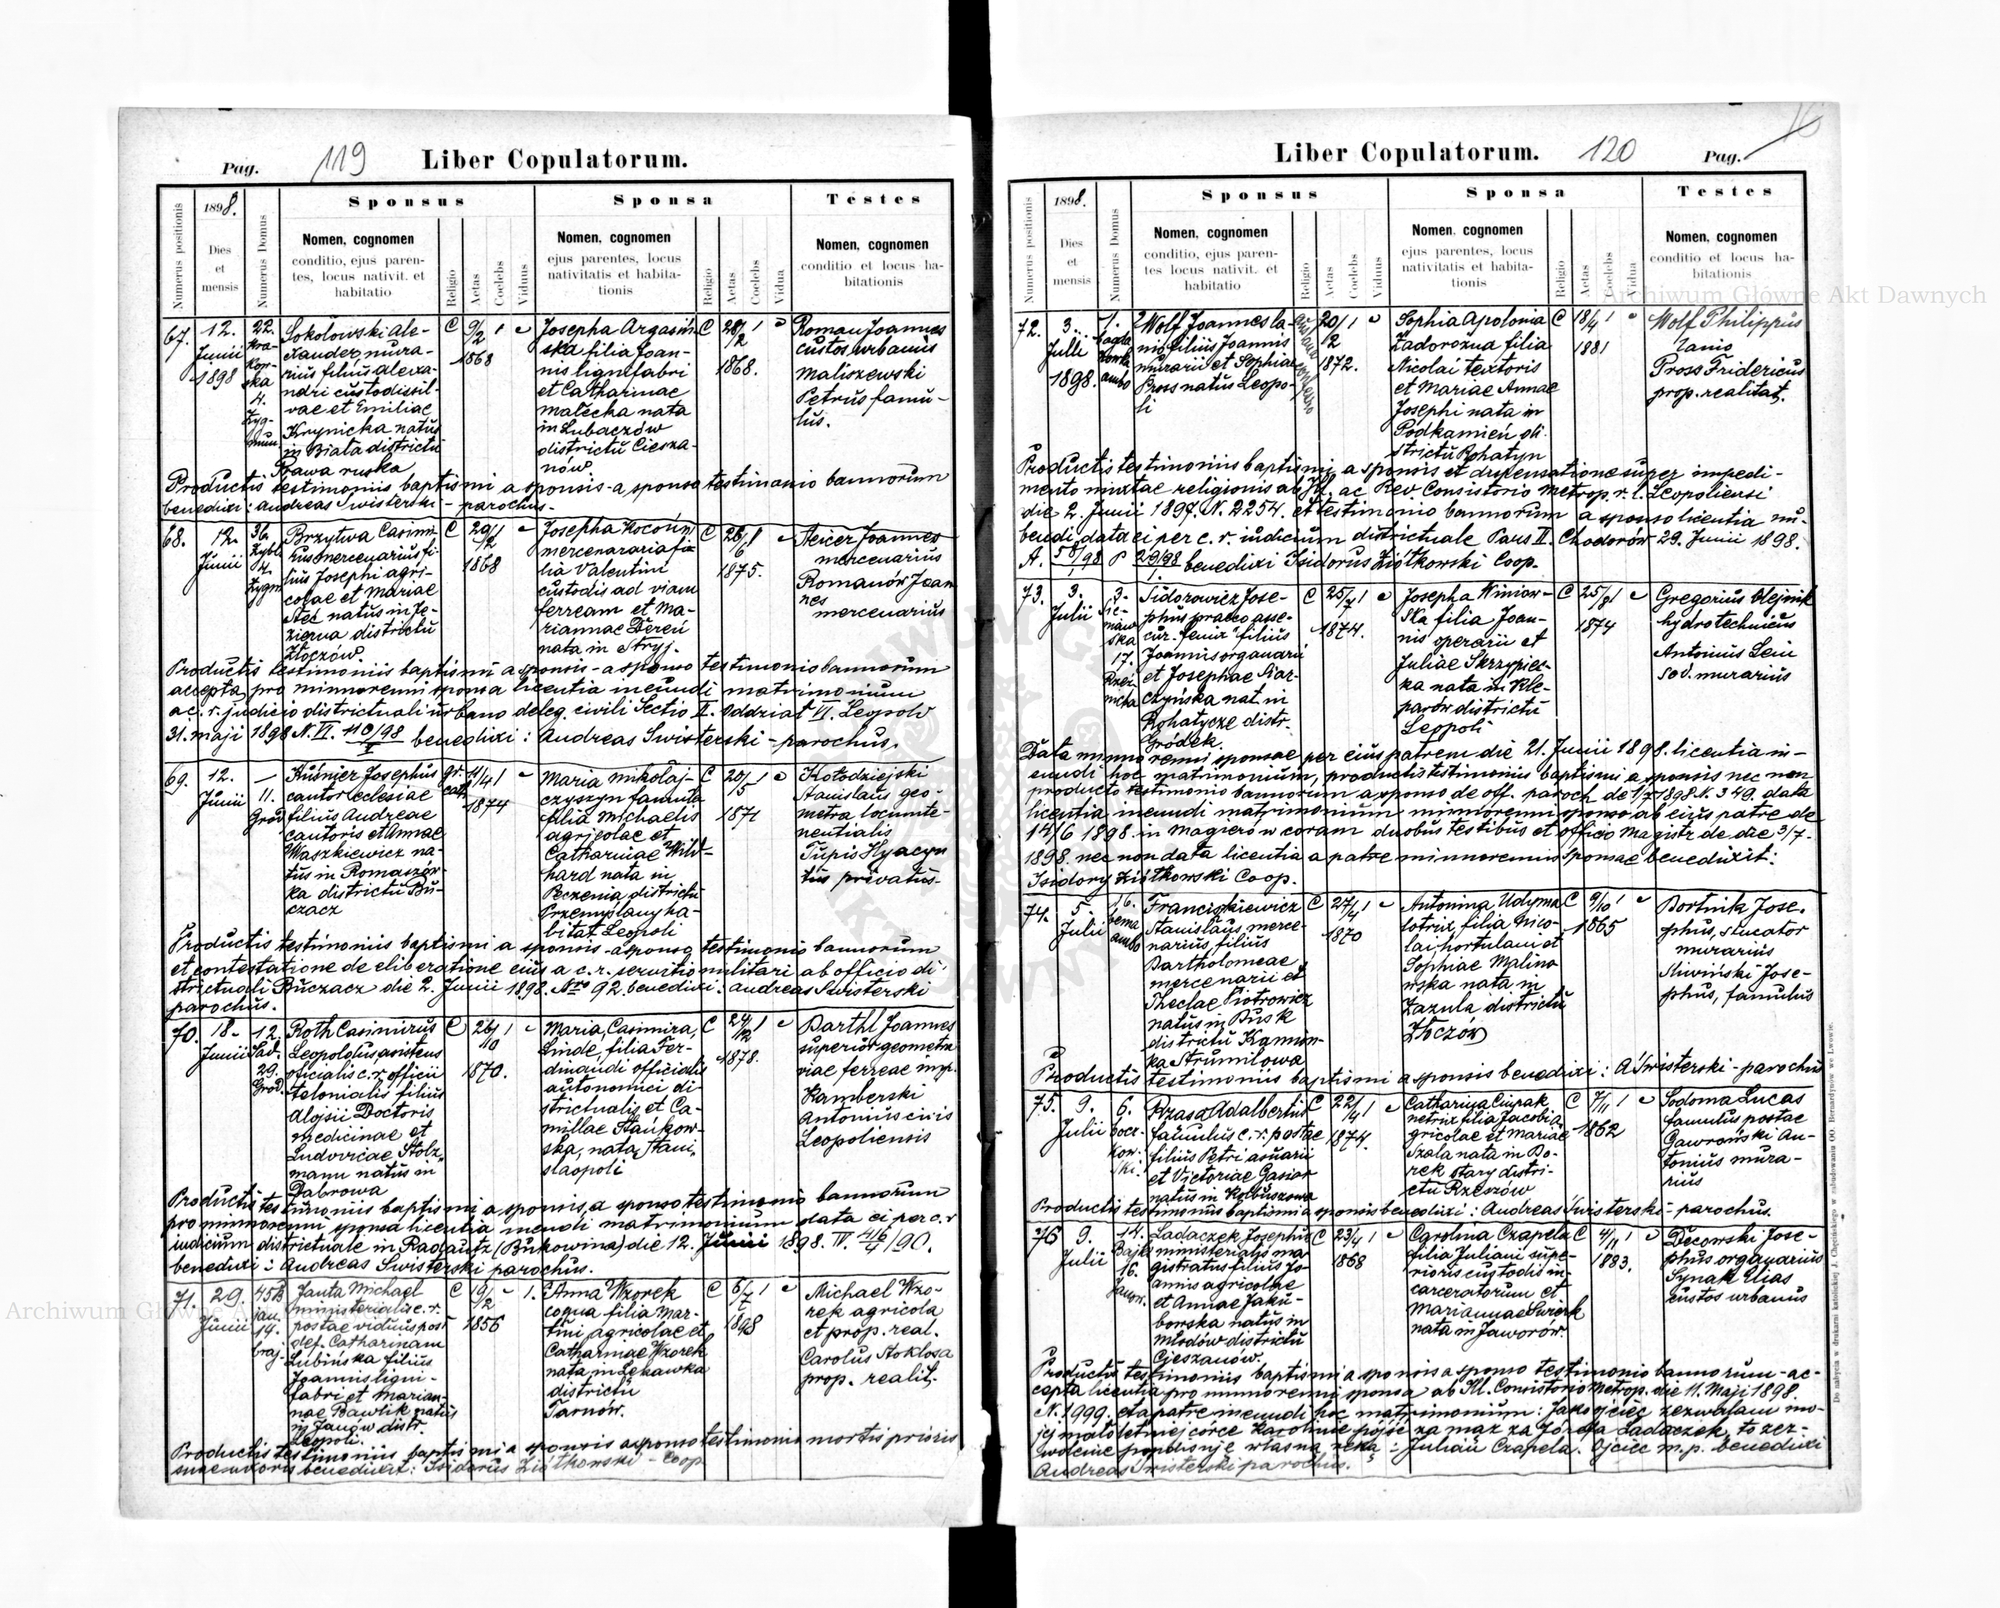 Pag. 119 Liber Copulatorum.
Numerus positionis
1898.
Dies
et
mensis
Numerus Domus
Sponsus
Nomen, cognomen
conditio, ejus paren-
tes, locus nativit. et
habitatio
Religio
Aetas
Coelebs
Viduus
Sponsa
Nomen, cognomen
ejus parentes, locus
nativitatis et habita-
tionis
Religio
Aetas
Coelebs
Vidua
Testes
Nomen, cognomen
conditio et locus ha-
bitationis
67.
12.
Junii
1898
22.
Kra-
kow-
ska
4.
Zyg-
mun
Sokołowski Ale-
xander, mura-
rius filius Alexa-
ndri custodis sil-
vae et Emiliae
Krynicka natus
in Biała districtu
Rawa ruska
C
9/2
1868
1
Josepha Argasiń-
ska filia Joan-
nis lignifabri
et Catharinae
Malecha nata
in Lubaczów
districtu Ciesza-
nów
C
28/2
1868.
1
Roman Joannes
custos urbanus
Maliszewski
Petrus famu-
lus.
Productis testimoniis baptismi a sponsis - a sponso testimonio bannorum
benedixi: Andreas Swisterski - parochus.
68.
12.
Junii
36.
Zybl.
4.
Zygm
Brzytwa Casimi-
rus mercenarius fi-
lius Josephi agri-
colae et Mariae
Stec natus in Je-
zierna districtu
Złoczów.
C
29/2
1868
1
Josepha Kocoń
mercenararia fi-
lia Valentini
custodis ad viam
ferream et Ma-
riannae Dereń
nata in Stryj.
C
28/6
1875.
1
Reicer Joannes
mercenarius
Romanów Joan
nes
mercenarius
Productis testimoniis baptismi a sponsis - a sponso testimonio bannorum
accepta pro minorenni sponsa licentia ineundi matrimonium
a c. r. judicio districtuali urbano deleg. civili Sectio II. Oddział VI. Leopold
31. maji 1898 N. VI. 110/98 benedixi: Andreas Swisterski - parochus.
69.
12.
Junii
—
11.
Grod
Kuśnier Josephus
cantor eclesiae
filius Andreae
cantoris et Annae
Waszkiewicz na-
tus in Romaszów-
ka districtu Bu-
czacz
gr.
cat.
11/4
1874
1
Maria Mikołaj-
czyszyn famula
filia Michaelis
agricolae et
Catharinae Wild-
hard nata in
Peczenia districtu
Przemyślany ha-
bitat Leopoli
C
20/5
1871
1
Kołodziejski
Stanislaus geo-
metra locumte-
nentialis
Tupis Hyacyn
tus privatus-
Productis testimoniis baptismi a sponsis - a sponso testimonio bannorum
et contestatione de eliberatione eius a c. r. servitio militari ab officio di-
strictuali Buczacz die 2. Junii 1898. Nro 92. benedixi: Andreas Swisterski
parochus.
70.
18-
Junii
12.
Sad.
29.
Grod.
Roth Casimirus
Leopoldus assistens
oficialis c. r. officii
telonialis filius
Alojsii Doctoris
medicinae et
Ludovicae Stolz-
mann natus in
Dąbrowa
C
26/10
1870.
1
Maria, Casimira,
Linde, filia Fer-
dinandi officialis
autonomici di-
strictualis et Ca-
millae Stańkow-
ska, nata Stani-
slaopoli
C
24/12
1878.
1
Barthl Joannes
superior geometra
viae ferreae imp.
Kamberski
Antonius civis
Leopoliensis
Productis testimoniis baptismi a sponsis, a sponso testimonio bannorum
pro minorenni sponsa licentia ineundi matrimonium data ei per c. r.
iudicium districtuale in Radautz (Bukowina) die 12. Junii 1898. IV. 46/4/90.
benedixi: Andreas Swisterski parochus.
71.
29.
Junii
45 B
Jan.
14.
Braj.
Janta Michael
ministerialis c. r.
postae viduus post
def. Catharinam
Lubińska filius
Joannis ligni-
fabri et Marian-
nae Pawlik natus
in Janów distr.
Leopoli.
C
19/2
1856
-
1.
Anna Wzorek
coqua filia Mar-
tini agricolae et
Catharinae Wzorek
nata in Łękawka
districtu
Tarnów.
C
5/7
1898
1
Michael Wzo-
rek agricola
et prop. real.
Carolus Stoklosa
prop. realit.
Productis testimoniis baptismi a sponsis a sponso testimonio mortis prioris
suae uxoris benedixit: Isidorus Ziółkowski - Coop
Liber Copulatorum. 120 Pag.
16
Numerus positionis
1898.
Dies
et
mensis
Numerus Domus
Sponsus
Nomen, cognomen
conditio, ejus paren-
tes locus nativit. et
habitatio
Religio
Aetas
Coelebs
Viduus
Sponsa
Nomen, cognomen
ejus parentes, locus
nativitatis et habita-
tionis
Religio
Aetas
Coelebs
Vidua
Testes
Nomen, cognomen
conditio et locus ha-
bitationis
72.
3.
Julii
1898.
1.
ambo
Wolf Joannes Ja-
nis filius Joannis
murarii et Sophiae
Pross natus Leopo-
li
20/2
1872.
1
Sophia Apolonia
Zadorozna filia
Nicolai textoris
et Mariae Annae
Josephi nata in
Podkamień di-
strictu Rohatyn
C
18/4
1881
1
Wolf Philippus
lanio
Pross Fridericus
prop. realitat.
Productis testimoniis baptismi a sponsis et dispensatione super impedi-
mento mixtae religionis ab Ill. ac Rev. Consistorio Metrop. r. l. Leopoliensi
die 2. Junii 1898. N. 2254. et testimonio bannorum a sponso licentia nu-
bendi data ei per c. r. iudicium districtuale Pars II. Chodorów 29. Junii 1898.
A. 58/98 P 29/98 benedixi Isidorus Ziółkowski Coop.
73.
3.
Julii
3.
Sie-
niaw
ska
17.
Rzeź-
nicka
Sidorowicz Jose-
phus praeco asse-
cur. "Fenix" filius
Joannis organarii
et Josephae Nar-
czyńska nat. in
Rohatycze distr.
Gródek.
C
25/4
1874.
1
Josepha Winiow-
ska filia Joan-
nis operarii et
Juliae Skrzypiec-
ka nata in Kle-
parów districtu
Leopoli
C
25/8
1874
1
Gregorius Olejnik
hydrotechnicus
Antonius Lein
sod. murarius
Data minorenni sponsae per eius patrem die 21. Junii 1898. licentia in-
eundi hoc matrimonium, productis testimoniis baptismi a sponsis nec non
producto testimonio bannorum a sponso de off. paroch de 1/7 1898 N. 349. data
licentia ineundi matrimonium minorenni sponso ab eius patre de
14/6 1898. in Magierów coram duobus testibus et officio Magistr de die 3/7.
1898. nec non data licentia a patre minorennis sponsae benedixit:
Isidory Ziółkowski Coop.
74.
5.
Julii
16.
Bema
ambo
Franciszkiewicz
Stanislaus merce-
narius, filius
Bartholomeae
mercenarii et
Theclae Piotrowicz
natus in Busk
districtu Kamion-
ka Strumilowa
C
27/4
1870
1
Antonina Udyma
lotrix filia Nico-
lai hortulani et
Sophiae Malino
wska nata in
Zazula districtu
Złoczów
C
9/10
1865
1
Bortnik Jose-
phus, stucator
murarius
Sliwiński Jose-
phus, famulus
Productis testimoniis baptismi a sponsis benedixi: A Swisterski - parochus
75.
9.
Julii
6.
Bocz-
kow-
ski.
Rzasa Adalbertus
famulus c. r. postae
filius Petri asuarii
et Victoriae Gasior
natus in Kolbuszowa
C
22/4
1874.
1
Catharina Ciupak
netrix filia Jacobi a-
gricolae et Mariae
Szala nata in Bo-
rek stary distri-
ctu Rzeszów
C
7/11
1862
1
Sodoma Lucas
famulus postae
Gawroński An-
tonius mura-
rius
Productis testimoniis baptismi a sponsis benedixi: Andreas Swisterski - parochus.
76
9.
Julii
14.
Bajki
16.
Janow.
Ladaczek Josephus
ministerialis ma-
gistratus filius Jo-
annis agricolae
et Annae Jaku-
bowska natus in
Młodów districtu
Cieszanów.
C
23/4
1868
1
Carolina Czapela
filia Juliani supe-
rioris custodis in-
carceratorum et
Mariannae Swierk
nata in Jaworów.
C
4/11
1883.
1
Decowski Jose-
phus organarius
Synak Elias
custos urbanus
Productis testimoniis baptismi a sponsis a sponso testimonio bannorum - ac-
cepta licentia pro minorenni sponsa ab Ill. Consistorio Metrop. die 11. Maji 1898.
N. 1999. et a patre ineundi hoc matrimonium: Jako ojciec zezwalam mo-
jej małoletniej córce Karolinie pójść za mąż za Józefa Ladaczek, to zez-
wolenie popdisuję własną ręką: Julian Czapela. Ojciec m.p. benedixi
Andreas Swisterski parochus.
Do nabycia w drukarni katolickiej J. Chęcińskiego w zabudowaniu OO. Bernardynów we Lwowie.
Archiwum Główne Akt Dawnych
Archiwum Główne A